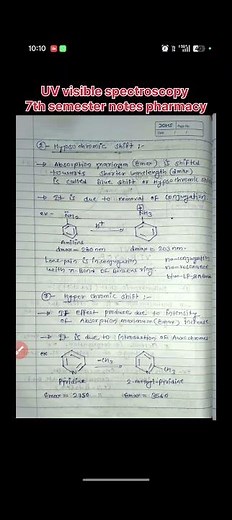 10:10
UV visible spectroscopy
7th semester notes pharmacy
2)- Hypsochromic shift :-
→ Absorption maximum (λmax) is shifted
towards shorter wavelength (λmax)
is called blue shift or Hypsochromic shift
→ It is due to removal of conjugation.
ex -
NH2
H+
NH3
Aniline
λmax = 280 nm
λmax = 203 nm
Lone pair is in conjugation
with π-Bond of Benzene ring.
No-conjugation
No-resonance
3)- Hyper chromic shift :-
→ If effect produce due to intensity
of Absorption maximum (εmax) increase
→ It is due to introduction of Auxochrome
ex
-CH3
N
N
CH3
Pyridine
2-methyl-pyridine
εmax = 2750
εmax = 3560